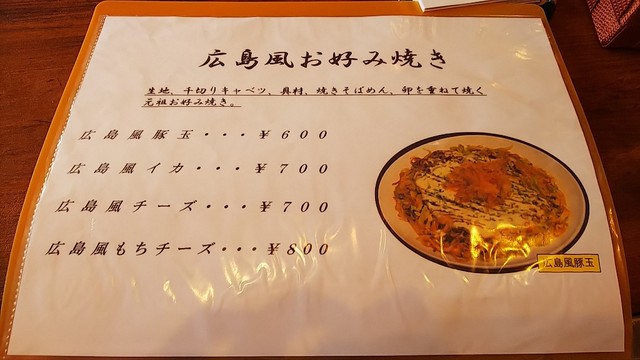 広島風お好み焼き
生地、千切りキャベツ、具材、焼きそばめん、卵を重ねて焼く
元祖お好み焼き。
広島風豚玉・・・￥６００
広島風イカ・・・￥７００
広島風チーズ・・・￥７００
広島風もちチーズ・・・￥８００
広島風豚玉